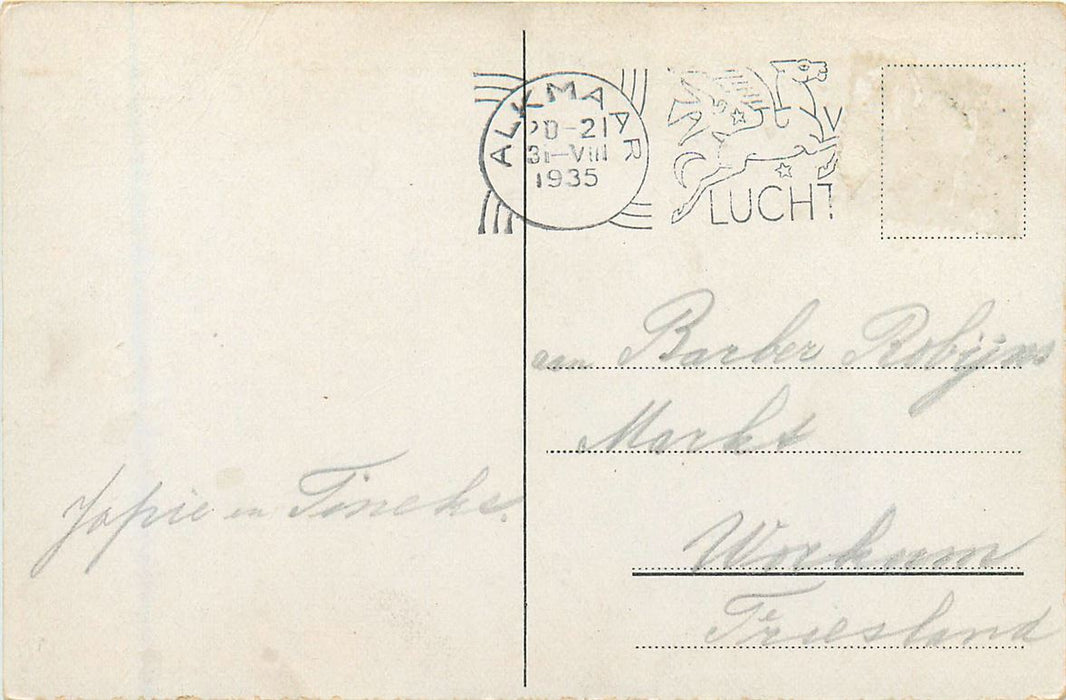 ALKMAAR
20-21
31-VIII
1935
VIA
V
LUCHT
aan Barber Robijns
Markt
Workum
Friesland
Japie en Tineke.